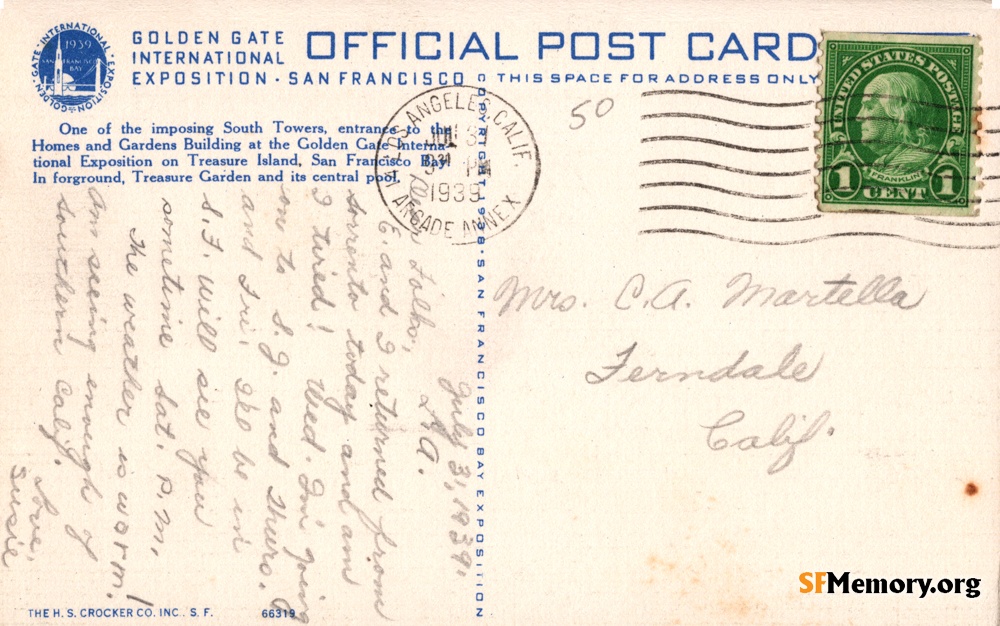 GOLDEN GATE
INTERNATIONAL
EXPOSITION · SAN FRANCISCO
OFFICIAL POST CARD
THIS SPACE FOR ADDRESS ONLY
GOLDEN·GATE·INTERNATIONAL·EXPOSITION·
1939
SAN FRANCISCO
BAY
One of the imposing South Towers, entrance to the
Homes and Gardens Building at the Golden Gate Interna-
tional Exposition on Treasure Island, San Francisco Bay.
In forground, Treasure Garden and its central pool.
LOS ANGELES, CALIF.
JUL 31
PM
1939
ARCADE ANNEX
50
UNITED STATES POSTAGE
FRANKLIN
1 CENT 1
July 31, 1939.
L.A.
Dear Folks,
E. and I returned from
Sorrento today and am
I tired! Wed. I'm going
on to S.J. and Thurs.
and Fri. I'll be in
S.F. Will see you
sometime Sat. P.M.
The weather is warm!
Am seeing enough of
Southern Calif.
Love,
Susie
COPYRIGHT 1938 · SAN FRANCISCO BAY EXPOSITION
Mrs. C.A. Martella
Ferndale
Calif.
THE H. S. CROCKER CO. INC., S. F.
66319
SFMemory.org